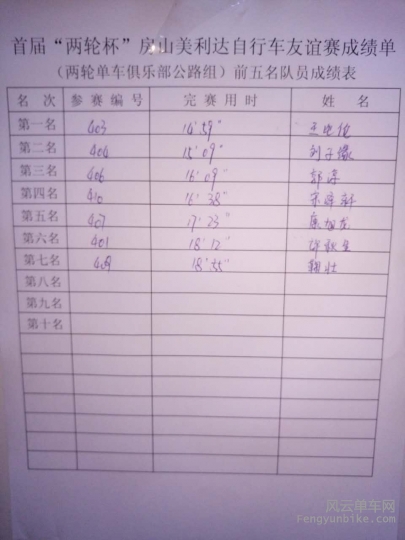 首届“两轮杯”房山美利达自行车友谊赛成绩单
（两轮单车俱乐部公路组）前五名队员成绩表
名 次 参 赛 编 号 完 赛 用 时 姓 名
第一名 403 14'59"
第二名 404 15'09"
第三名 406 16'09"
第四名 410 16'38"
第五名 407 17'23"
第六名 401 18'12"
第七名 409 18'55"
第八名
第九名
第十名
风云单车网
Fengyunbike.com